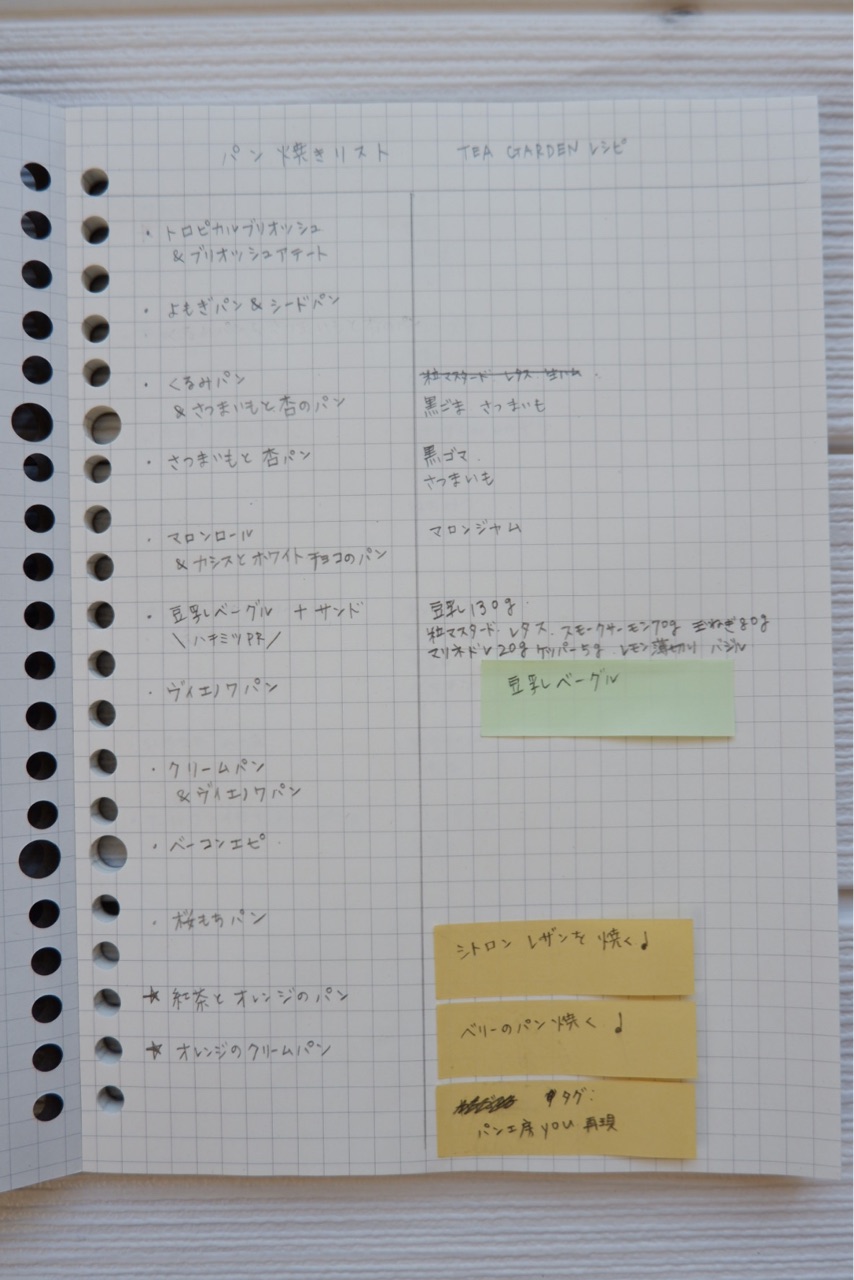 パン焼きリスト TEA GARDEN レシピ
・トロピカルブリオッシュ
&ブリオッシュアテート
・よもぎパン & シードパン
・くるみパン
粒マスタード レタス 生ハム
&さつまいもと杏のパン
黒ごま さつまいも
・さつまいもと杏パン
黒ゴマ
さつまいも
・マロンロール
マロンジャム
&カシスとホワイトチョコのパン
・豆乳ベーグル +サンド
豆乳130g
\ハチミツPR/
粒マスタード レタス スモークサーモン70g 玉ねぎ80g
マリネドレ20g ケッパー5g レモン薄切り バジル
豆乳ベーグル
・ヴィエノワパン
・クリームパン
&ヴィエノワパン
・ベーコンエピ
・桜もちパン
シトロン レザンを焼く♩
★紅茶とオレンジのパン
ベリーのパン焼く ♩
★オレンジのクリームパン
タグ:
パン工房you再現